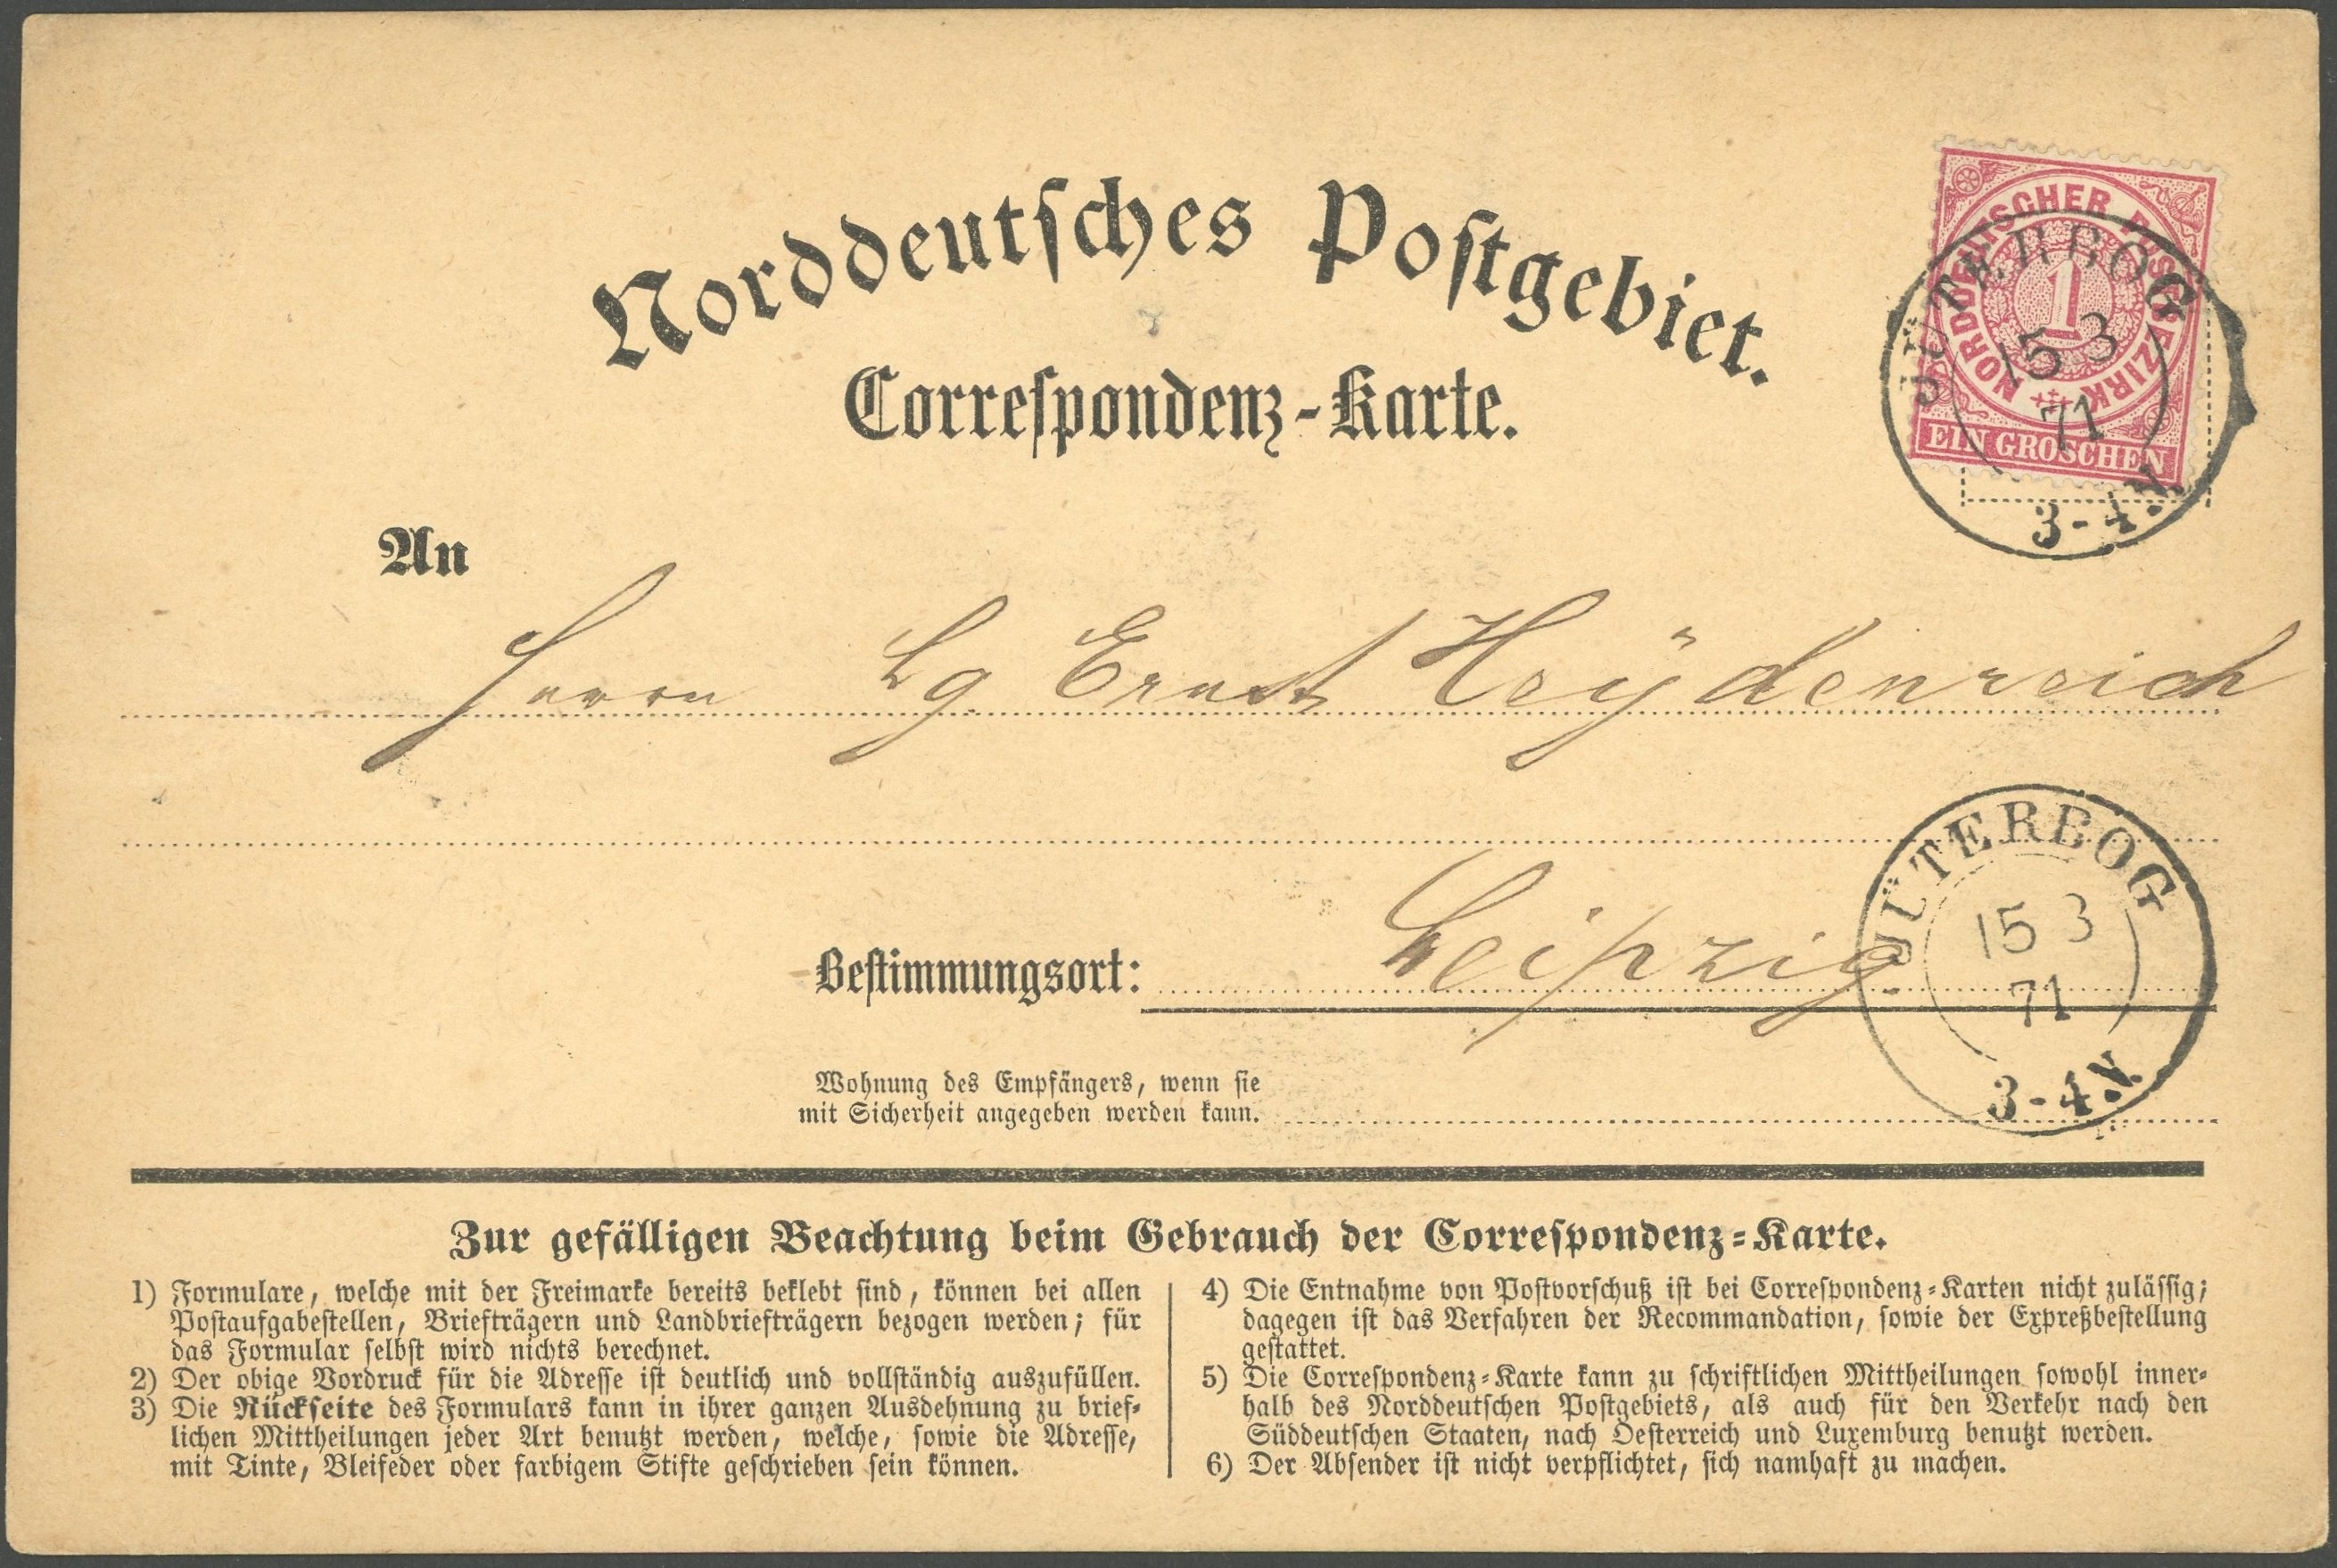 Norddeutsches Postgebiet.
Correspondenz-Karte.
NORDDEUTSCHER POSTBEZIRK
1
EIN GROSCHEN
JÜTERBOG
15 3
71
3-4.V.
An
Herrn Lg. Ernst Heÿdenreich
Bestimmungsort: Leipzig
JÜTERBOG
15 3
71
3-4.V.
Wohnung des Empfängers, wenn sie
mit Sicherheit angegeben werden kann.
Zur gefälligen Beachtung beim Gebrauch der Correspondenz-Karte.
1) Formulare, welche mit der Freimarke bereits beklebt sind, können bei allen
Postaufgabestellen, Briefträgern und Landbriefträgern bezogen werden; für
das Formular selbst wird nichts berechnet.
2) Der obige Vordruck für die Adresse ist deutlich und vollständig auszufüllen.
3) Die Rückseite des Formulars kann in ihrer ganzen Ausdehnung zu brief-
lichen Mittheilungen jeder Art benutzt werden, welche, sowie die Adresse,
mit Tinte, Bleifeder oder farbigem Stifte geschrieben sein können.
4) Die Entnahme von Postvorschuß ist bei Correspondenz-Karten nicht zulässig;
dagegen ist das Verfahren der Recommandation, sowie der Expreßbestellung
gestattet.
5) Die Correspondenz-Karte kann zu schriftlichen Mittheilungen sowohl inner-
halb des Norddeutschen Postgebiets, als auch für den Verkehr nach den
Süddeutschen Staaten, nach Oesterreich und Luxemburg benutzt werden.
6) Der Absender ist nicht verpflichtet, sich namhaft zu machen.